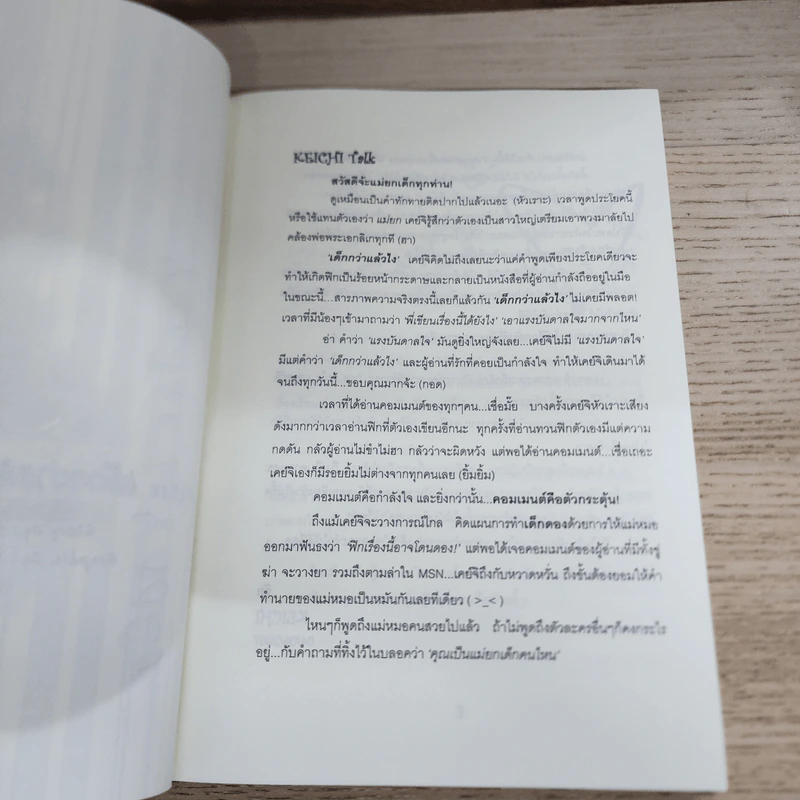 KEICHI Talk
สวัสดีจ้ะแม่ยกเด็กทุกท่าน!
ดูเหมือนเป็นคำทักทายติดปากไปแล้วเนอะ (หัวเราะ) เวลาพูดประโยคนี้
หรือใช้แทนตัวเองว่า แม่ยก เคย์จิรู้สึกว่าตัวเองเป็นสาวใหญ่เตรียมเอาพวงมาลัยไป
คล้องพ่อพระเอกลิเกทุกที (ฮา)
'เด็กกว่าแล้วไง' เคย์จิคิดไม่ถึงเลยนะว่าแค่คำพูดเพียงประโยคเดียวจะ
ทำให้เกิดฟิกเป็นร้อยหน้ากระดาษและกลายเป็นหนังสือที่ผู้อ่านกำลังถืออยู่ในมือ
ในขณะนี้...สารภาพความจริงตรงนี้เลยก็แล้วกัน 'เด็กกว่าแล้วไง' ไม่เคยมีพลอต!
เวลาที่มีน้องๆเข้ามาถามว่า 'พี่เขียนเรื่องนี้ได้ยังไง' 'เอาแรงบันดาลใจมากจากไหน'
อ่า คำว่า 'แรงบันดาลใจ' มันดูยิ่งใหญ่จังเลย...เคย์จิไม่มี 'แรงบันดาลใจ'
มีแต่คำว่า 'เด็กกว่าแล้วไง' และผู้อ่านที่รักที่คอยเป็นกำลังใจ ทำให้เคย์จิเดินมาได้
จนถึงทุกวันนี้...ขอบคุณมากจ้ะ (กอด)
เวลาที่ได้อ่านคอมเมนต์ของทุกๆคน...เชื่อมั๊ย บางครั้งเคย์จิหัวเราะเสียง
ดังมากกว่าเวลาอ่านฟิกที่ตัวเองเขียนอีกนะ ทุกครั้งที่อ่านทวนฟิกตัวเองมีแต่ความ
กดดัน กลัวผู้อ่านไม่ขำไม่ฮา กลัวว่าจะผิดหวัง แต่พอได้อ่านคอมเมนต์...เชื่อเถอะ
เคย์จิเองก็มีรอยยิ้มไม่ต่างจากทุกคนเลย (ยิ้มยิ้ม)
คอมเมนต์คือกำลังใจ และยิ่งกว่านั้น...คอมเมนต์คือตัวกระตุ้น!
ถึงแม้เคย์จิจะวางการณ์ไกล คิดแผนการทำเด็กดองด้วยการให้แม่หมอ
ออกมาฟันธงว่า 'ฟิกเรื่องนี้อาจโดนดอง!' แต่พอได้เจอคอมเมนต์ของผู้อ่านที่มีทั้งขู่
ฆ่า จะวางยา รวมถึงตามล่าใน MSN...เคย์จิถึงกับหวาดหวั่น ถึงขั้นต้องยอมให้คำ
ทำนายของแม่หมอเป็นหมันกันเลยทีเดียว ( >_< )
ไหนๆก็พูดถึงแม่หมอคนสวยไปแล้ว ถ้าไม่พูดถึงตัวละครอื่นๆก็คงกระไร
อยู่...กับคำถามที่ทิ้งไว้ในบลอคว่า 'คุณเป็นแม่ยกเด็กคนไหน'